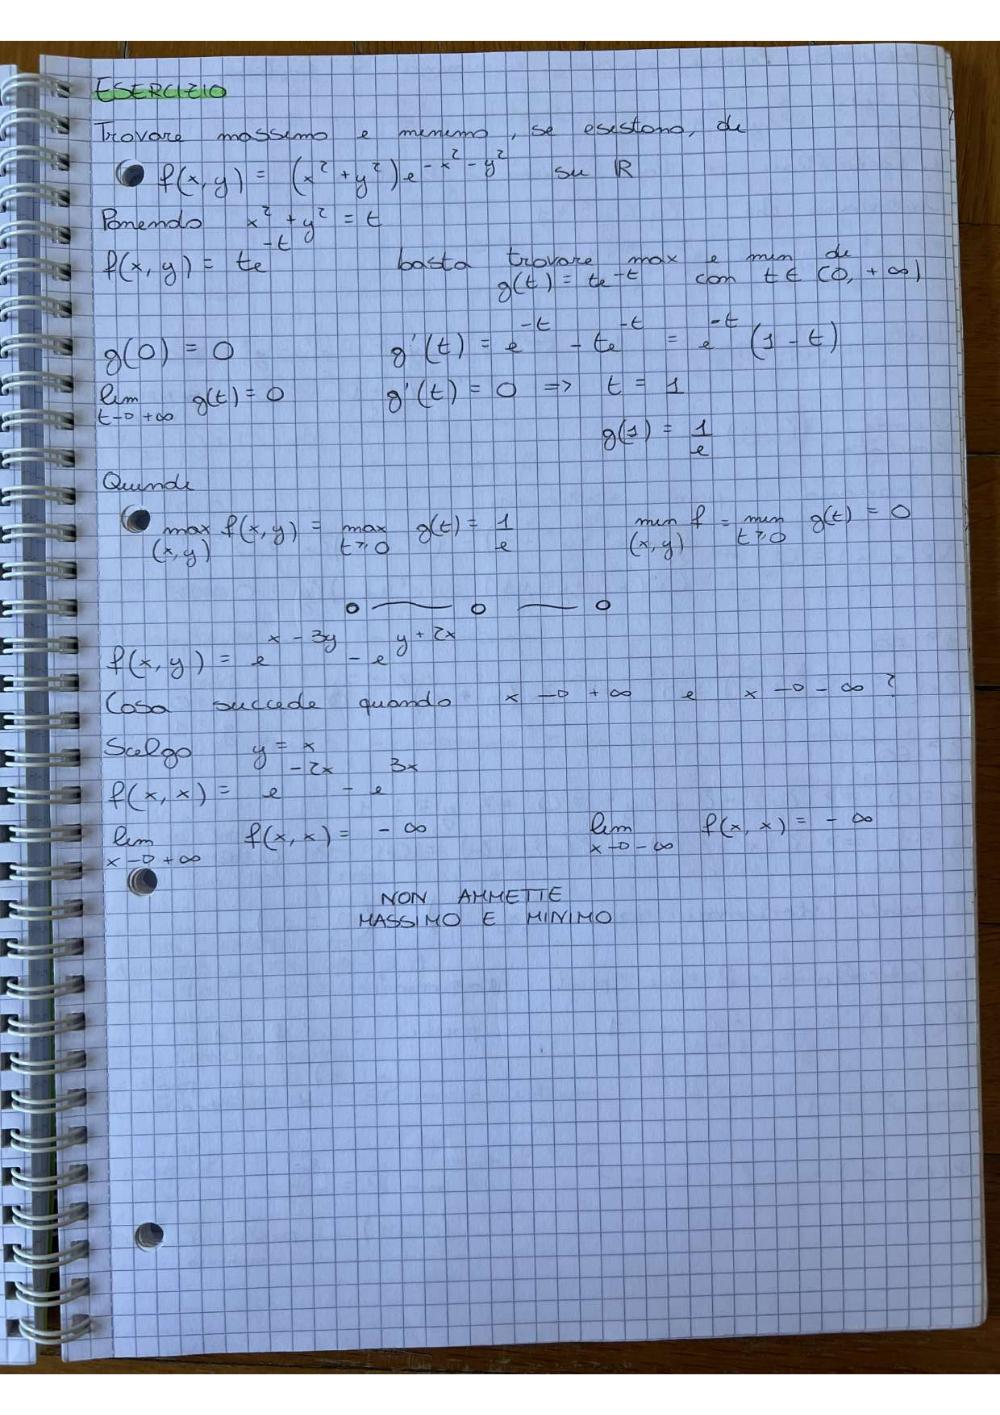 ESERCIZIO
Trovare massimo e minimo, se esistono, di
f(x,y) = (x² + y²)e^{-x² - y²} su R
Ponendo x² + y² = t
f(x,y) = te^{-t} basta trovare max e min di
g(t) = te^{-t} con t ∈ (0, +∞)
g(0) = 0 g'(t) = e^{-t} - te^{-t} = e^{-t} (1 - t)
lim_{t→+∞} g(t) = 0 g'(t) = 0 => t = 1
g(1) = 1/e
Quindi
max_{(x,y)} f(x,y) = max_{t≥0} g(t) = 1/e min_{(x,y)} f = min_{t≥0} g(t) = 0
f(x,y) = e^{x - 3y} - e^{y + 2x}
Cosa succede quando x → +∞ e x → -∞ ?
Scelgo y = x
f(x,x) = e^{-2x} - e^{3x}
lim_{x→+∞} f(x,x) = -∞ lim_{x→-∞} f(x,x) = -∞
NON AMMETTE
MASSIMO E MINIMO